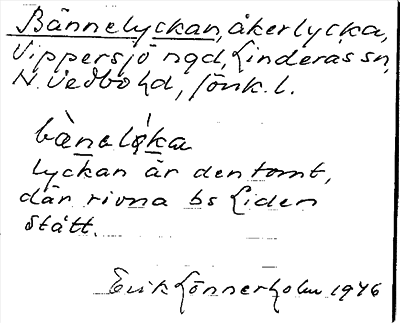 Bännelyckan, åkerlycka,
Vippersjö ngd, Linderås sn,
N. Vedbo hd, Jönk. l.
bànelỳka
lyckan är den tomt,
där rivna bs Liden
stått.
Erik Lönnerholm 1946